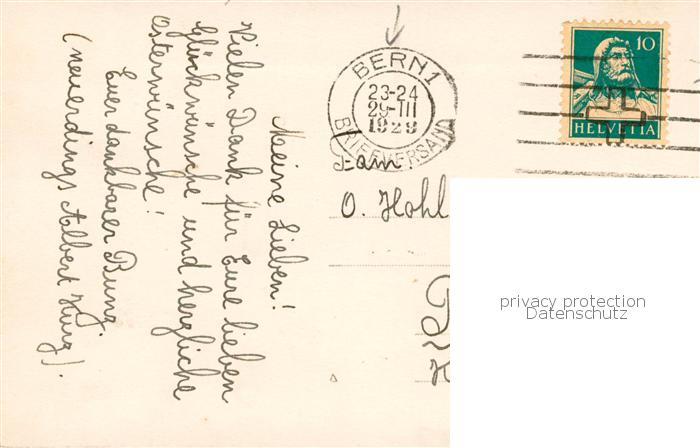 Meine Lieben!
Vielen Dank für Eure lieben
Glückwünsche und herzliche
Osterwünsche!
Euer dankbarer Bung.
(neuerdings Albert Kurz).
BERN 1
23-24
29-III
1929
BRIEFVERSAND
10
HELVETIA
Fam
O. Hohl
privacy protection
Datenschutz